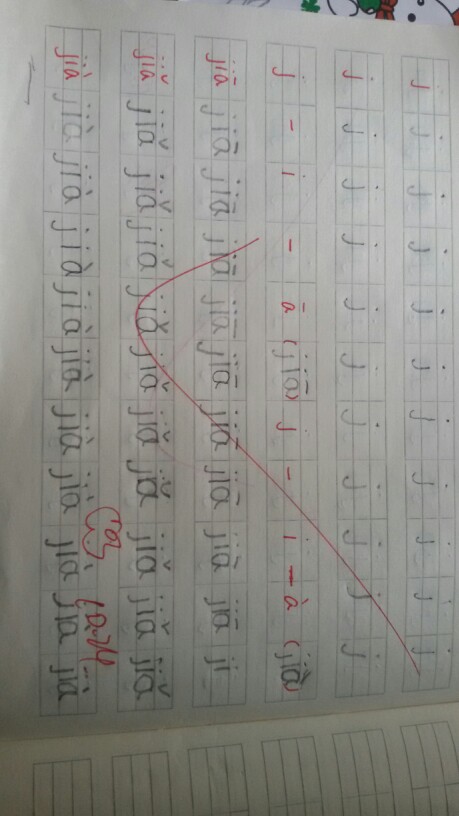 j j j j j j j j j j j
j j j j j j j j j j j
j - i - ā (jiā) j - i - à (jià)
jiā jiā jiā jiā jiā jiā jiā jiā jiā jiā ji
jiǎ jiǎ jiǎ jiǎ jiǎ jiǎ jiǎ jiǎ jiǎ jiǎ jiǎ
jià jià jià jià jià jià jià jià jià jià jià